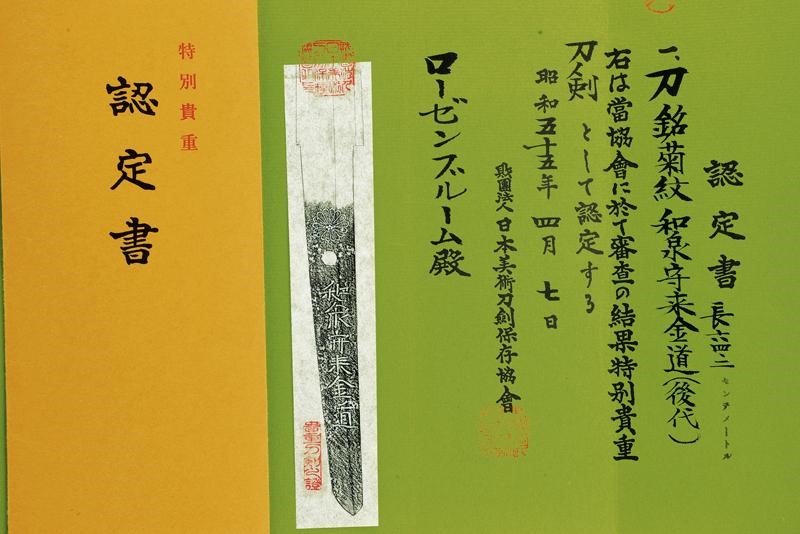 認定書
一、刀 銘 菊紋 和泉守来金道(後代)
長六四・二
センチメートル
右は當協會に於て審査の結果特別貴重
刀劍 として認定する
昭和五十五年 四月 七日
財團法人 日本美術刀劍保存協會
ローゼンブルーム殿
和泉守来金道
貴重刀剣之證
特別貴重
認定書